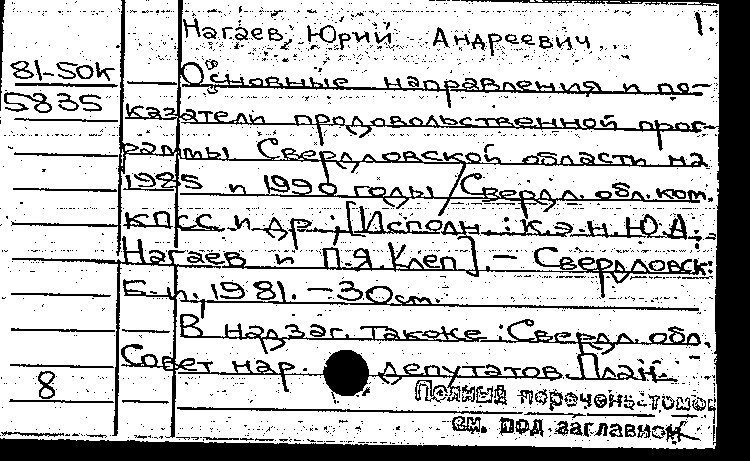 Нагаев, Юрий Андреевич
1.
81-50к
5835
Основные направления и по-
казатели продовольственной прог-
раммы Свердловской области на
1985 и 1990 годы / Свердл. обл. ком.
КПСС и др.; [Исполн.: к.э.н. Ю.А.
Нагаев и П.Я. Клеп]. — Свердловск:
Б.и., 1981. — 30 см.
В надзаг. также: Свердл. обл.
Совет нар. депутатов. План.
8
Полный перечень томов
см. под заглавием